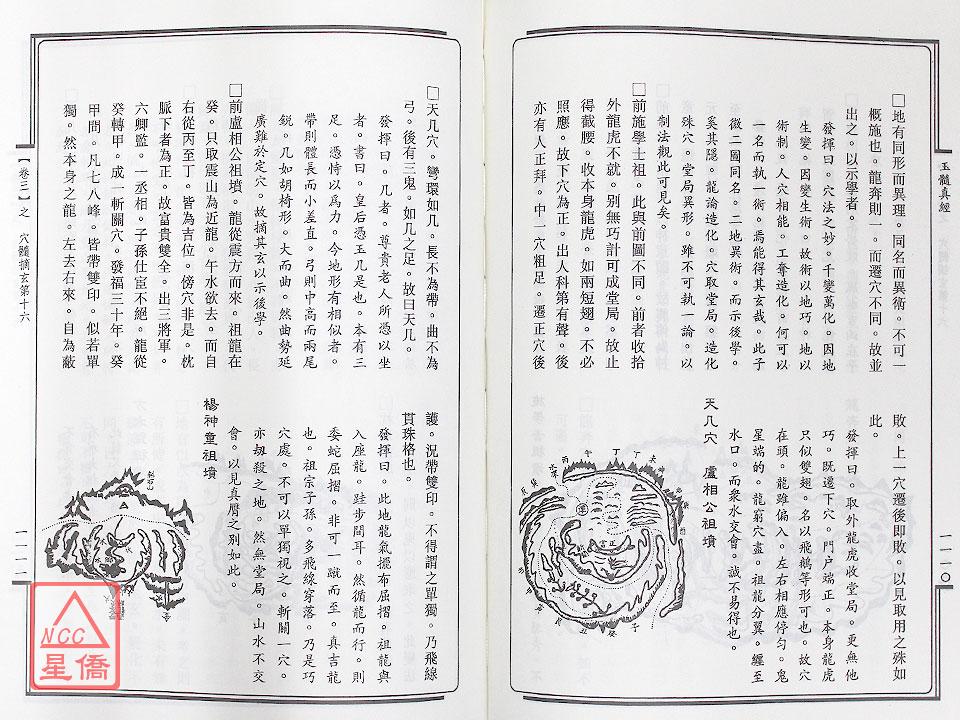 玉髓真經
□地有同形而異理。同名而異術。不可一
概施也。龍奔則一。而遷穴不同。故並
出之。以示學者。
發揮曰。穴法之妙。千變萬化。因地
生變。因變生術。故術以地巧。地以
術制。人穴相能。工奪造化。何可以
一名而執一術。焉能得其玄哉。此子
微二國同名。二地異術。而示後學。
奚其隱。龍論造化。穴取堂局。造化
殊穴。堂局異形。雖不可執一論。以
制法觀此可見矣。
□前施學士祖。此與前圖不同。前者收拾
外龍虎不就。別無巧計可成堂局。故止
得截腰。收本身龍虎。如兩短翅。不必
照應。故下穴為正。出人科第有聲。後
亦有人正拜。中一穴粗足。遷正穴後
敗。上一穴遷後即敗。以見取用之殊如
此。
發揮曰。取外龍虎收堂局。更無他
巧。既邊下穴。門户端正。本身龍虎
只似雙翅。名以飛鵝等形可也。故穴
在頭。龍雖偏入。左右相應停勻。鬼
星端的。龍窮穴盡。祖龍分翼。纏至
水口。而衆水交會。誠不易得也。
天几穴 盧相公祖墳
一一〇
□天几穴。彎環如几。長不為帶。曲不為
弓。後有三鬼。如几之足。故曰天几。
發揮曰。几者。尊貴老人所憑以坐
者。書曰。皇后憑玉几是也。本有三
足。憑恃以為力。今地形有相似者。
帶則體長而小差直。弓則中高而兩尾
銳。几如胡椅形。大而曲。然曲勢延
廣難於定穴。故摘其玄以示後學。
□前盧相公祖墳。龍從震方而來。祖龍在
癸。只取震山為近龍。午水欲去。而自
右從丙至丁。皆為吉位。傍穴非是。枕
脈下者為正。故富貴雙全。出三將軍。
六卿監。一丞相。子孫仕宦不絕。龍從
癸轉甲。成一斬關穴。發福三十年。癸
甲問。凡七八峰。皆帶雙印。似若單
獨。然本身之龍。左去右來。自為蔽
護。況帶雙印。不得謂之單獨。乃飛線
貫珠格也。
發揮曰。此地龍氣擺布屈摺。祖龍與
入座龍。跬步間耳。然循龍而行。則
委蛇屈摺。非可一蹴而至。真吉龍
也。祖宗子孫。多飛線穿落。乃是巧
穴處。不可以單獨視之。斬關一穴。
亦刼殺之地。然無堂局。山水不交
會。以見真贋之別如此。
楊神童祖墳
【卷三】之 穴髓摘玄第十六
一一一
NCC
星僑